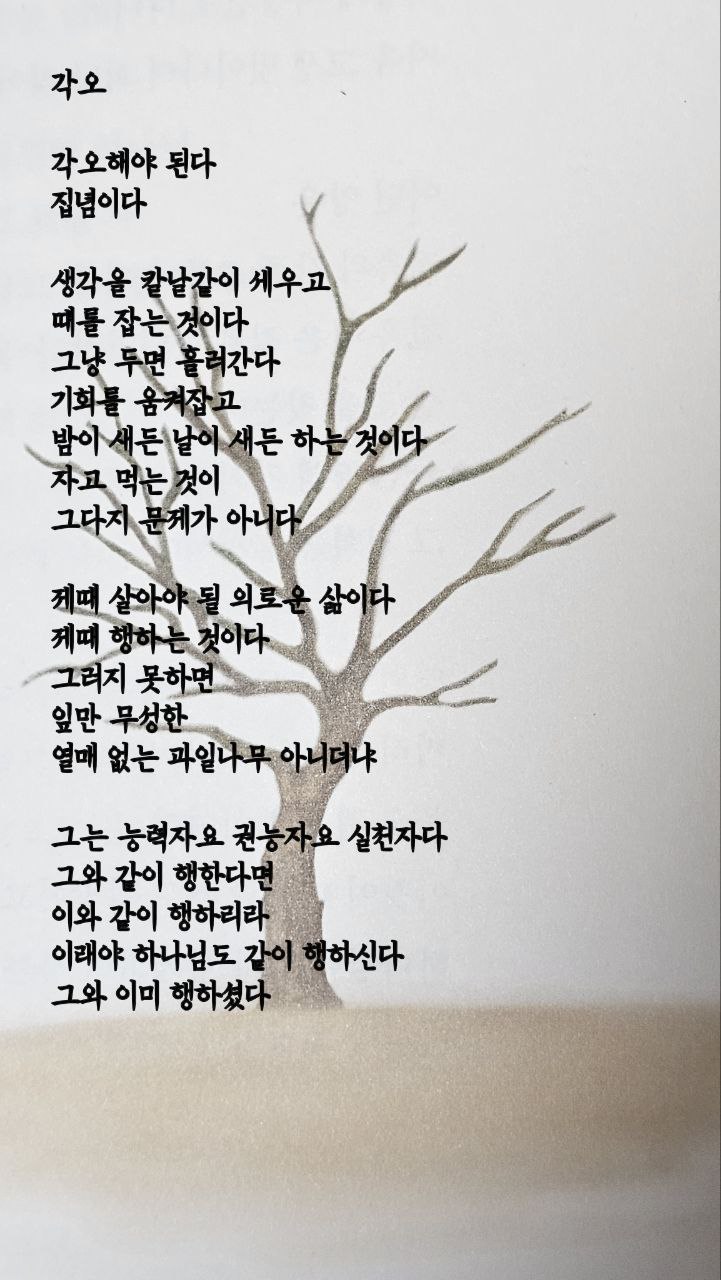 각오
각오해야 된다
집념이다
생각을 칼날같이 세우고
때를 잡는 것이다
그냥 두면 흘러간다
기회를 움켜잡고
밤이 새든 날이 새든 하는 것이다
자고 먹는 것이
그다지 문제가 아니다
제때 살아야 될 의로운 삶이다
제때 행하는 것이다
그러지 못하면
잎만 무성한
열매 없는 과일나무 아니더냐
그는 능력자요 권능자요 실천자다
그와 같이 행한다면
이와 같이 행하리라
이래야 하나님도 같이 행하신다
그와 이미 행하셨다